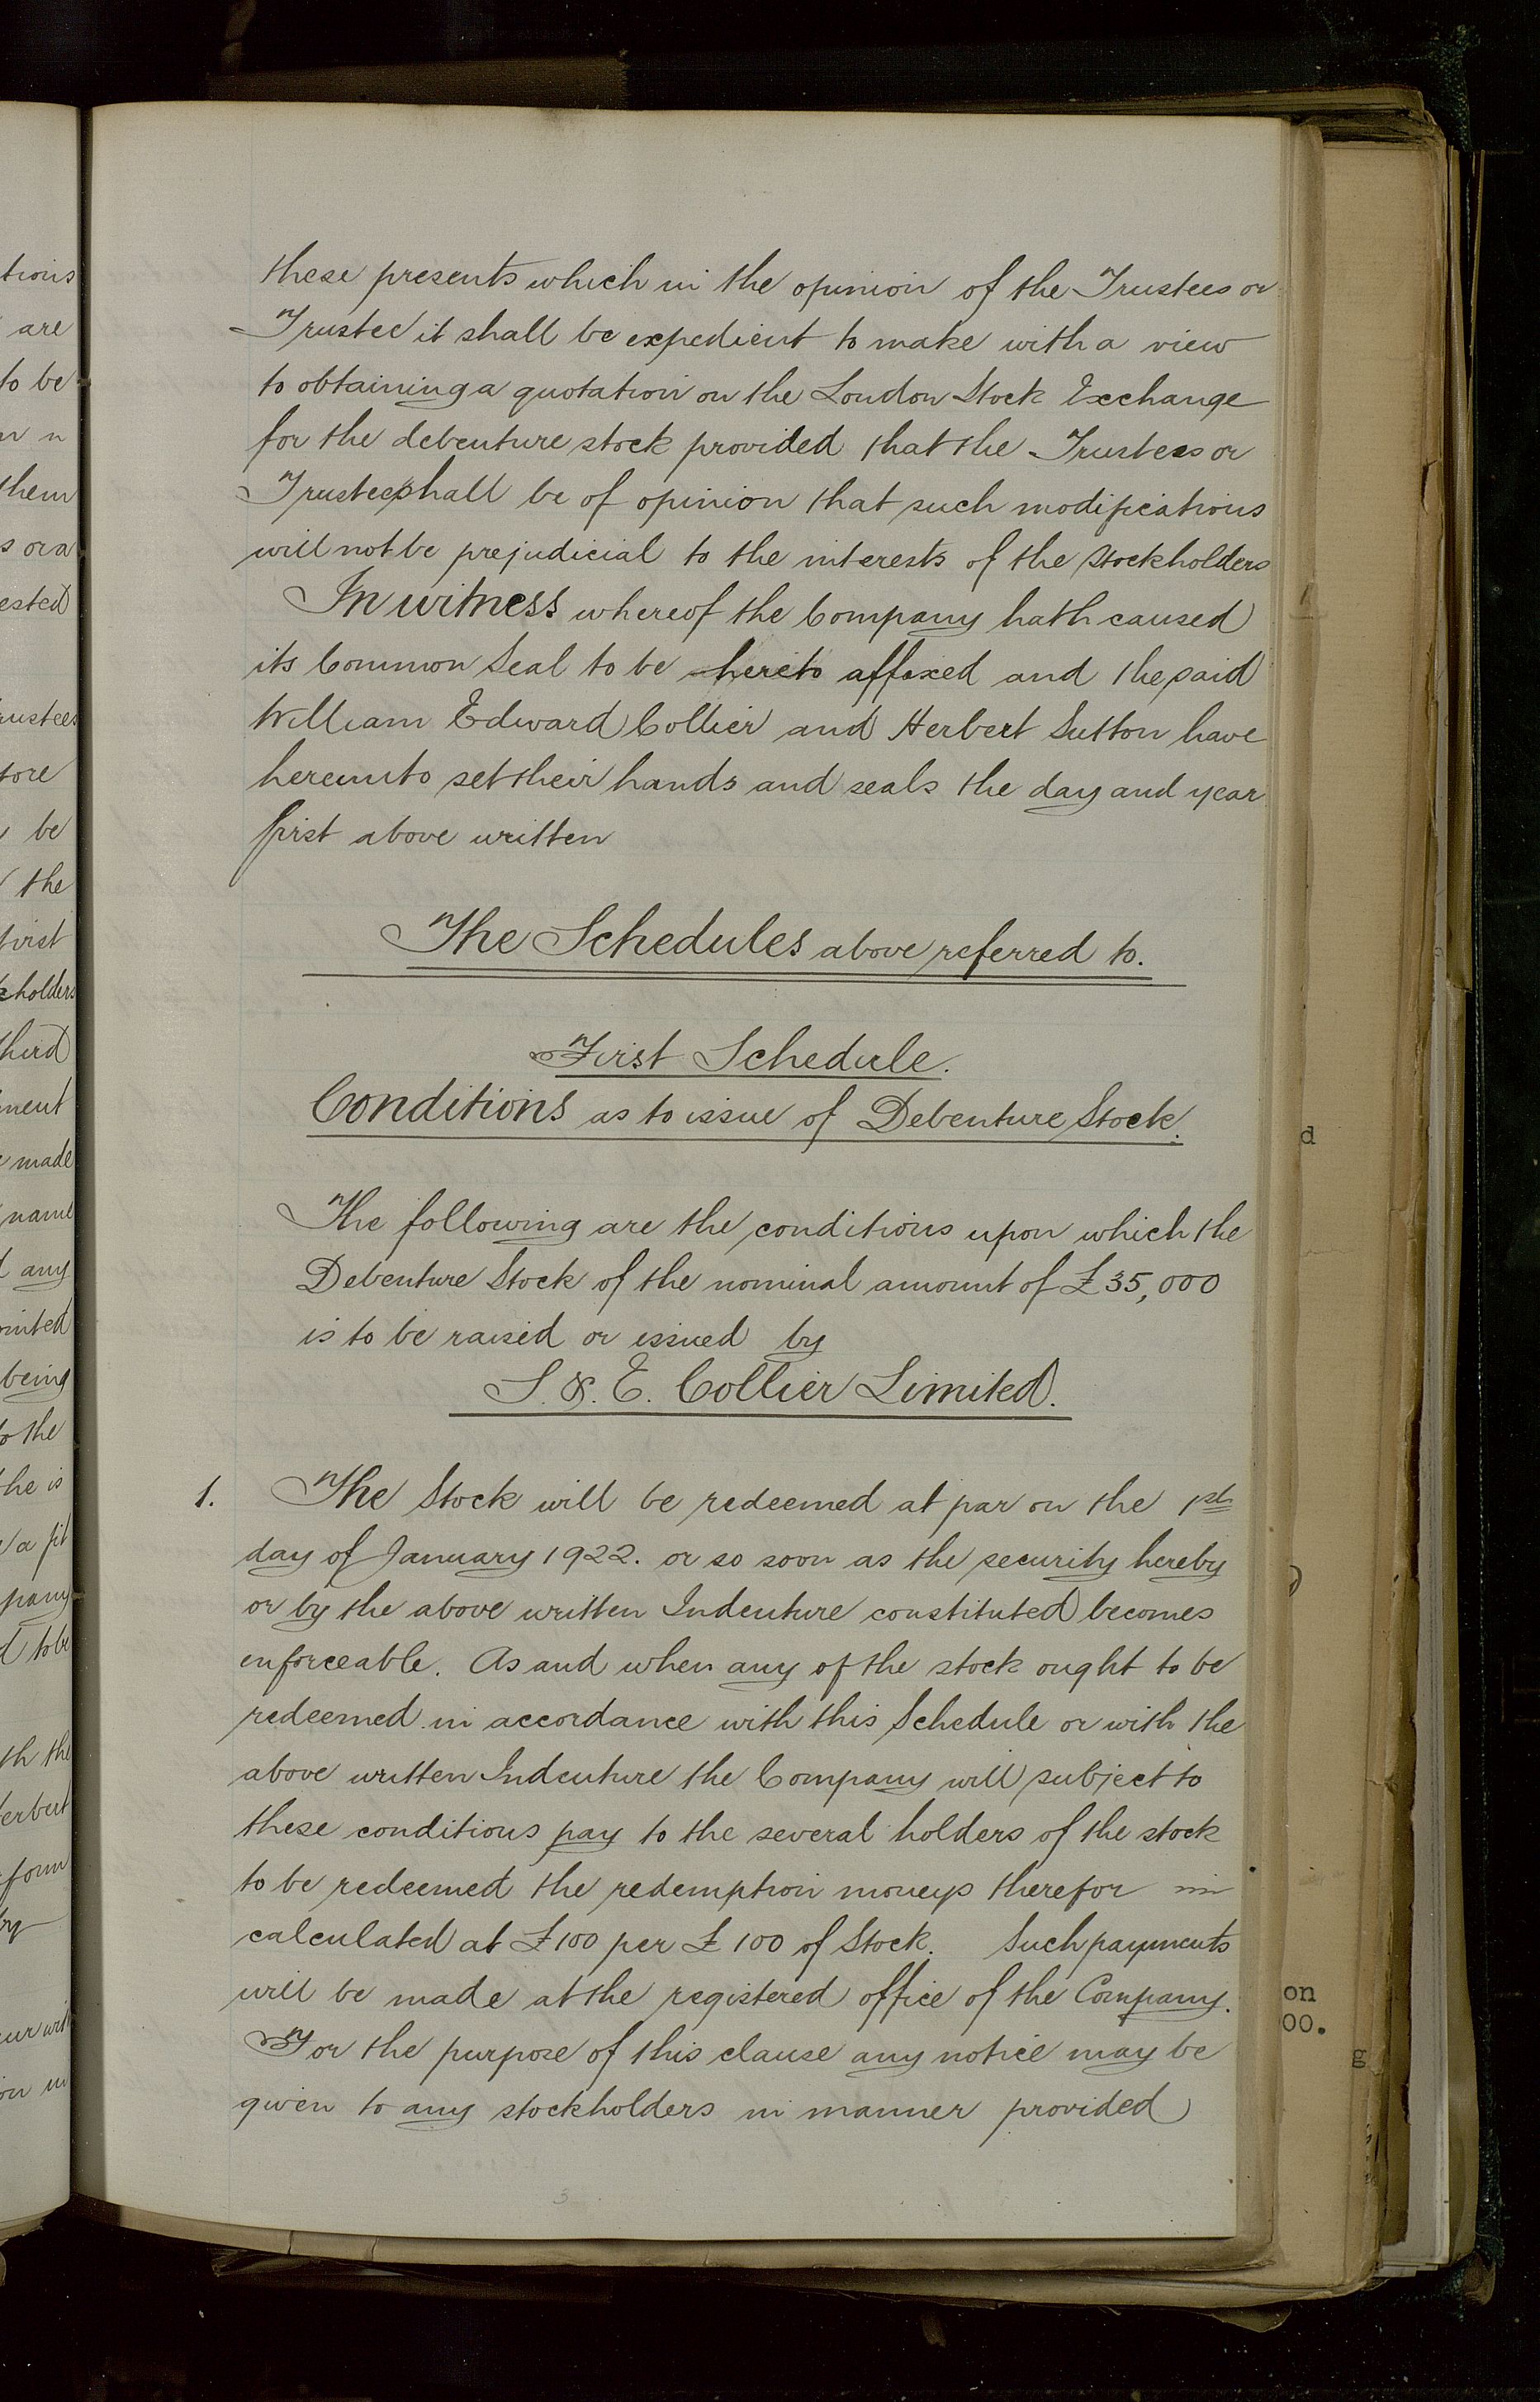 these presents which in the opinion of the Trustees or
Trustee it shall be expedient to make with a view
to obtaining a quotation on the London Stock Exchange
for the debenture stock provided that the Trustees or
Trustee shall be of opinion that such modifications
will not be prejudicial to the interests of the stockholders
In witness whereof the Company hath caused
its Common Seal to be hereto affixed and the said
William Edward Collier and Herbert Sutton have
hereunto set their hands and seals the day and year
first above written
The Schedules above referred to.
First Schedule.
Conditions as to issue of Debenture Stock.
The following are the conditions upon which the
Debenture Stock of the nominal amount of £35,000
is to be raised or issued by
S. & E. Collier Limited.
1. The Stock will be redeemed at par on the 1st
day of January 1922. or so soon as the security hereby
or by the above written Indenture constituted becomes
enforceable. As and when any of the stock ought to be
redeemed in accordance with this Schedule or with the
above written Indenture the Company will subject to
these conditions pay to the several holders of the stock
to be redeemed the redemption moneys therefor
calculated at £100 per £100 of Stock. Such payments
will be made at the registered office of the Company.
For the purpose of this clause any notice may be
given to any stockholders in manner provided